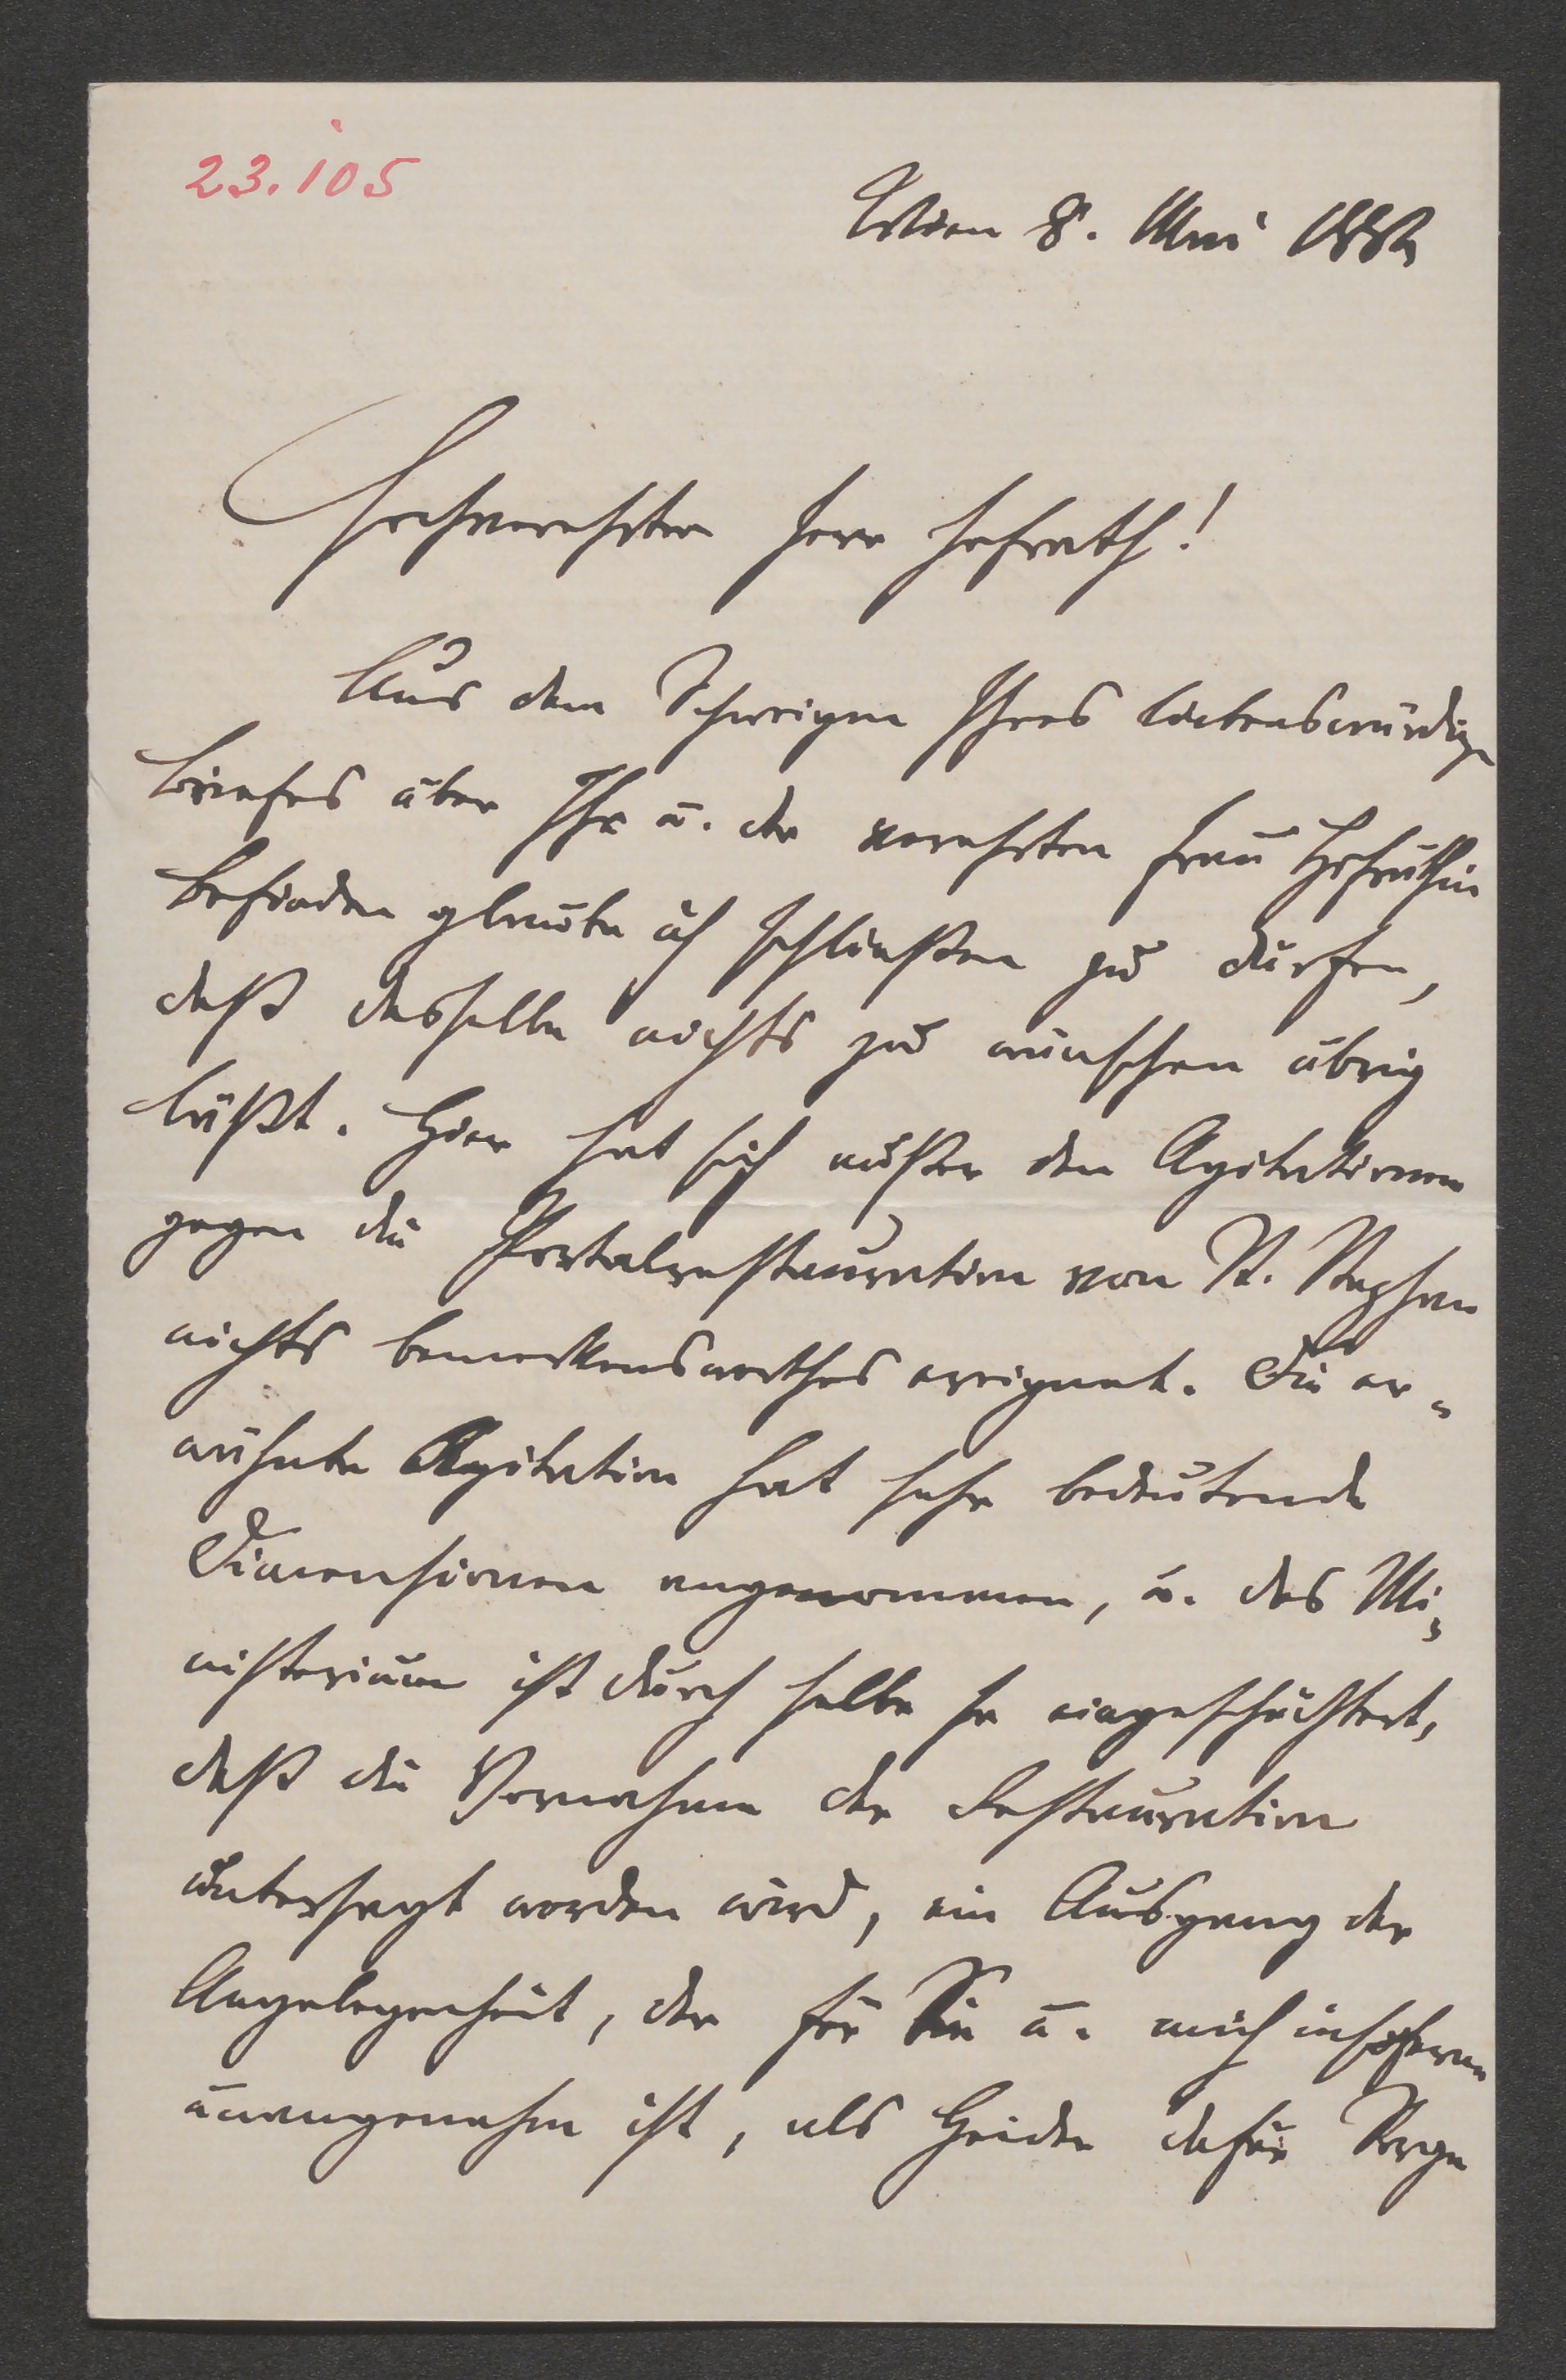 23.105
Wien 8. Mai 1882
Hochverehrter Herr Hofrath!
Aus dem Schweigen Ihres liebenswürdigen
Briefes über Ihr u. der verehrten Frau Hofräthin
Befinden glaube ich schließen zu dürfen,
daß dasselbe nichts zu wünschen übrig
läßt. Hier hat sich außer den Agitationen
gegen die Portalrestauration von St. Stephan
nichts bemerkenswerthes ereignet. Die er-
wähnte Agitation hat sehr bedeutende
Dimensionen angenommen, u. das Mi-
nisterium ist durch selbe so eingeschüchtert,
daß die Vornahme der Restauration
untersagt werden wird, ein Ausgang der
Angelegenheit, der für Sie u. mich insoferne
unangenehm ist, als Heider dafür Sorge